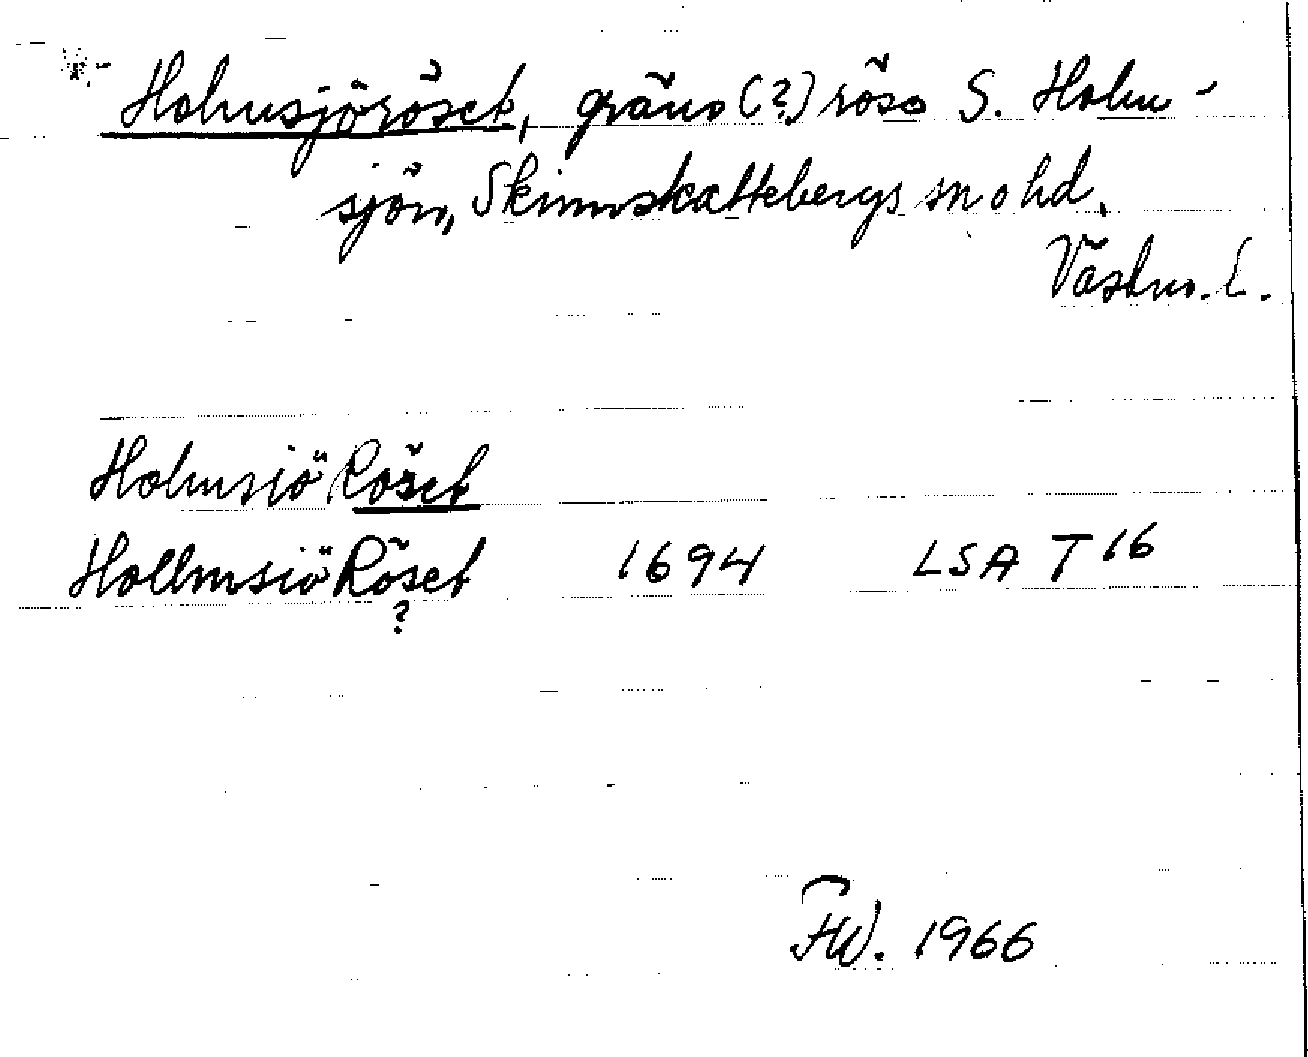 *- Holmsjöröset, gräns(?)röse S. Holm-
sjön, Skinnskattebergs sn o hd.
Västm. L.
Holmsiö Röset
Hollmsiö Röset 1694 LSA T 16
?
FW. 1966